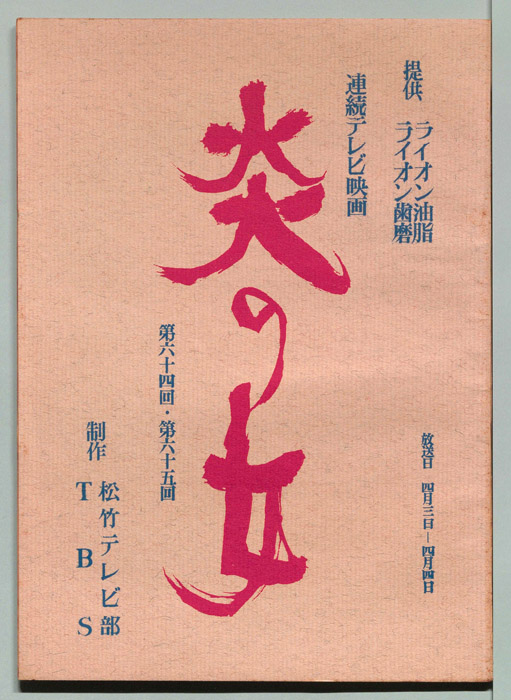 提供、ライオン油脂
ライオン歯磨
連続テレビ映画
炎の女
第六十四回・第六十五回
放送日 四月三日―四月四日
制作 松竹テレビ部
TBS